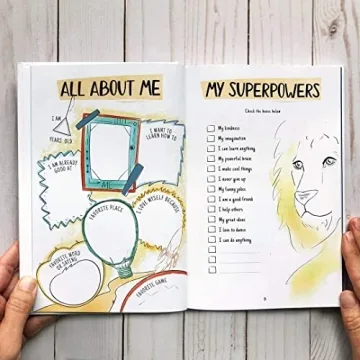 ALL ABOUT ME
I AM
YEARS OLD
I WANT TO
LEARN HOW TO
I AM ALREADY
GOOD AT
ME
I LOVE MYSELF BECAUSE
FAVORITE PLACE
FAVORITE WORD
OR SAYING
FAVORITE GAME
MY SUPERPOWERS
Check the boxes below
My kindness
My imagination
I can learn anything
My powerful brain
I make cool things
I never give up
My funny jokes
I am a good friend
I help others
My great ideas
I love to dance
I can do anything